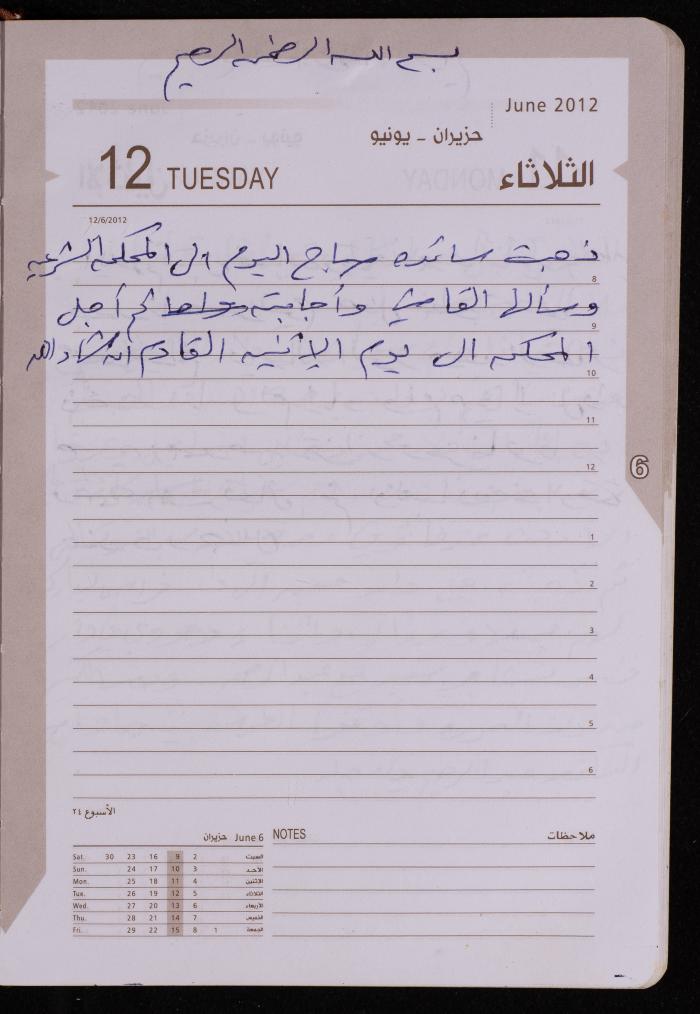 بسم الله الرحمن الرحيم
June 2012
حزيران - يونيو
12 TUESDAY الثلاثاء
12/6/2012
ذهبت سائده صباح اليوم الى المحكمة الشرعيه
8
وسألها القاضي وأجابته ثم أجل
9
المحكمه الى يوم الإثنين القادم إن شاء الله
10
11
12
6
1
2
3
4
5
6
الأسبوع ٢٤
June 6 حزيران
NOTES ملاحظات
Sat. 30 23 16 9 2 السبت
Sun. 24 17 10 3 الأحد
Mon. 25 18 11 4 الإثنين
Tux. 26 19 12 5 الثلاثاء
Wed. 27 20 13 6 الأربعاء
Thu. 28 21 14 7 الخميس
Fri. 29 22 15 8 1 الجمعة